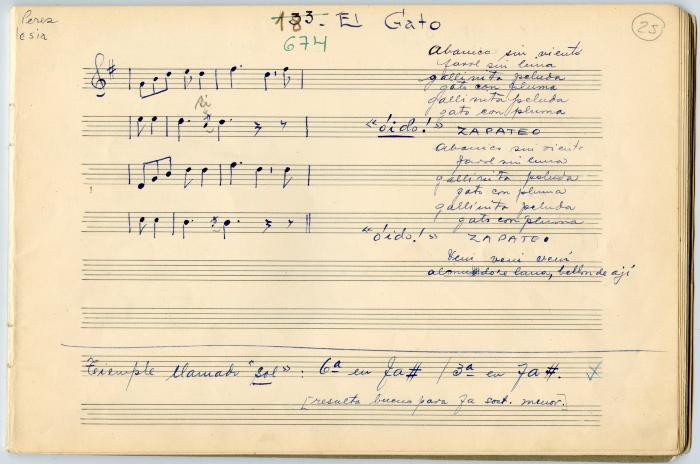 Perez
18 33- El Gato
674
25
Abanico sin viento
farol sin luna
gallinita peluda
gato con pluma
gallinita peluda
gato con pluma
Si
«óido!» ZAPATEO
Abanico sin viento
farol sin luna
gallinita peluda
gato con pluma
gallinita peluda
gato con pluma
«óido!» ZAPATEO
Vení vení vení
de ají
Temple llamado "sol»: 6ª en Fa# / 3ª en Fa#.
[resulta bueno para Fa sost. menor.]